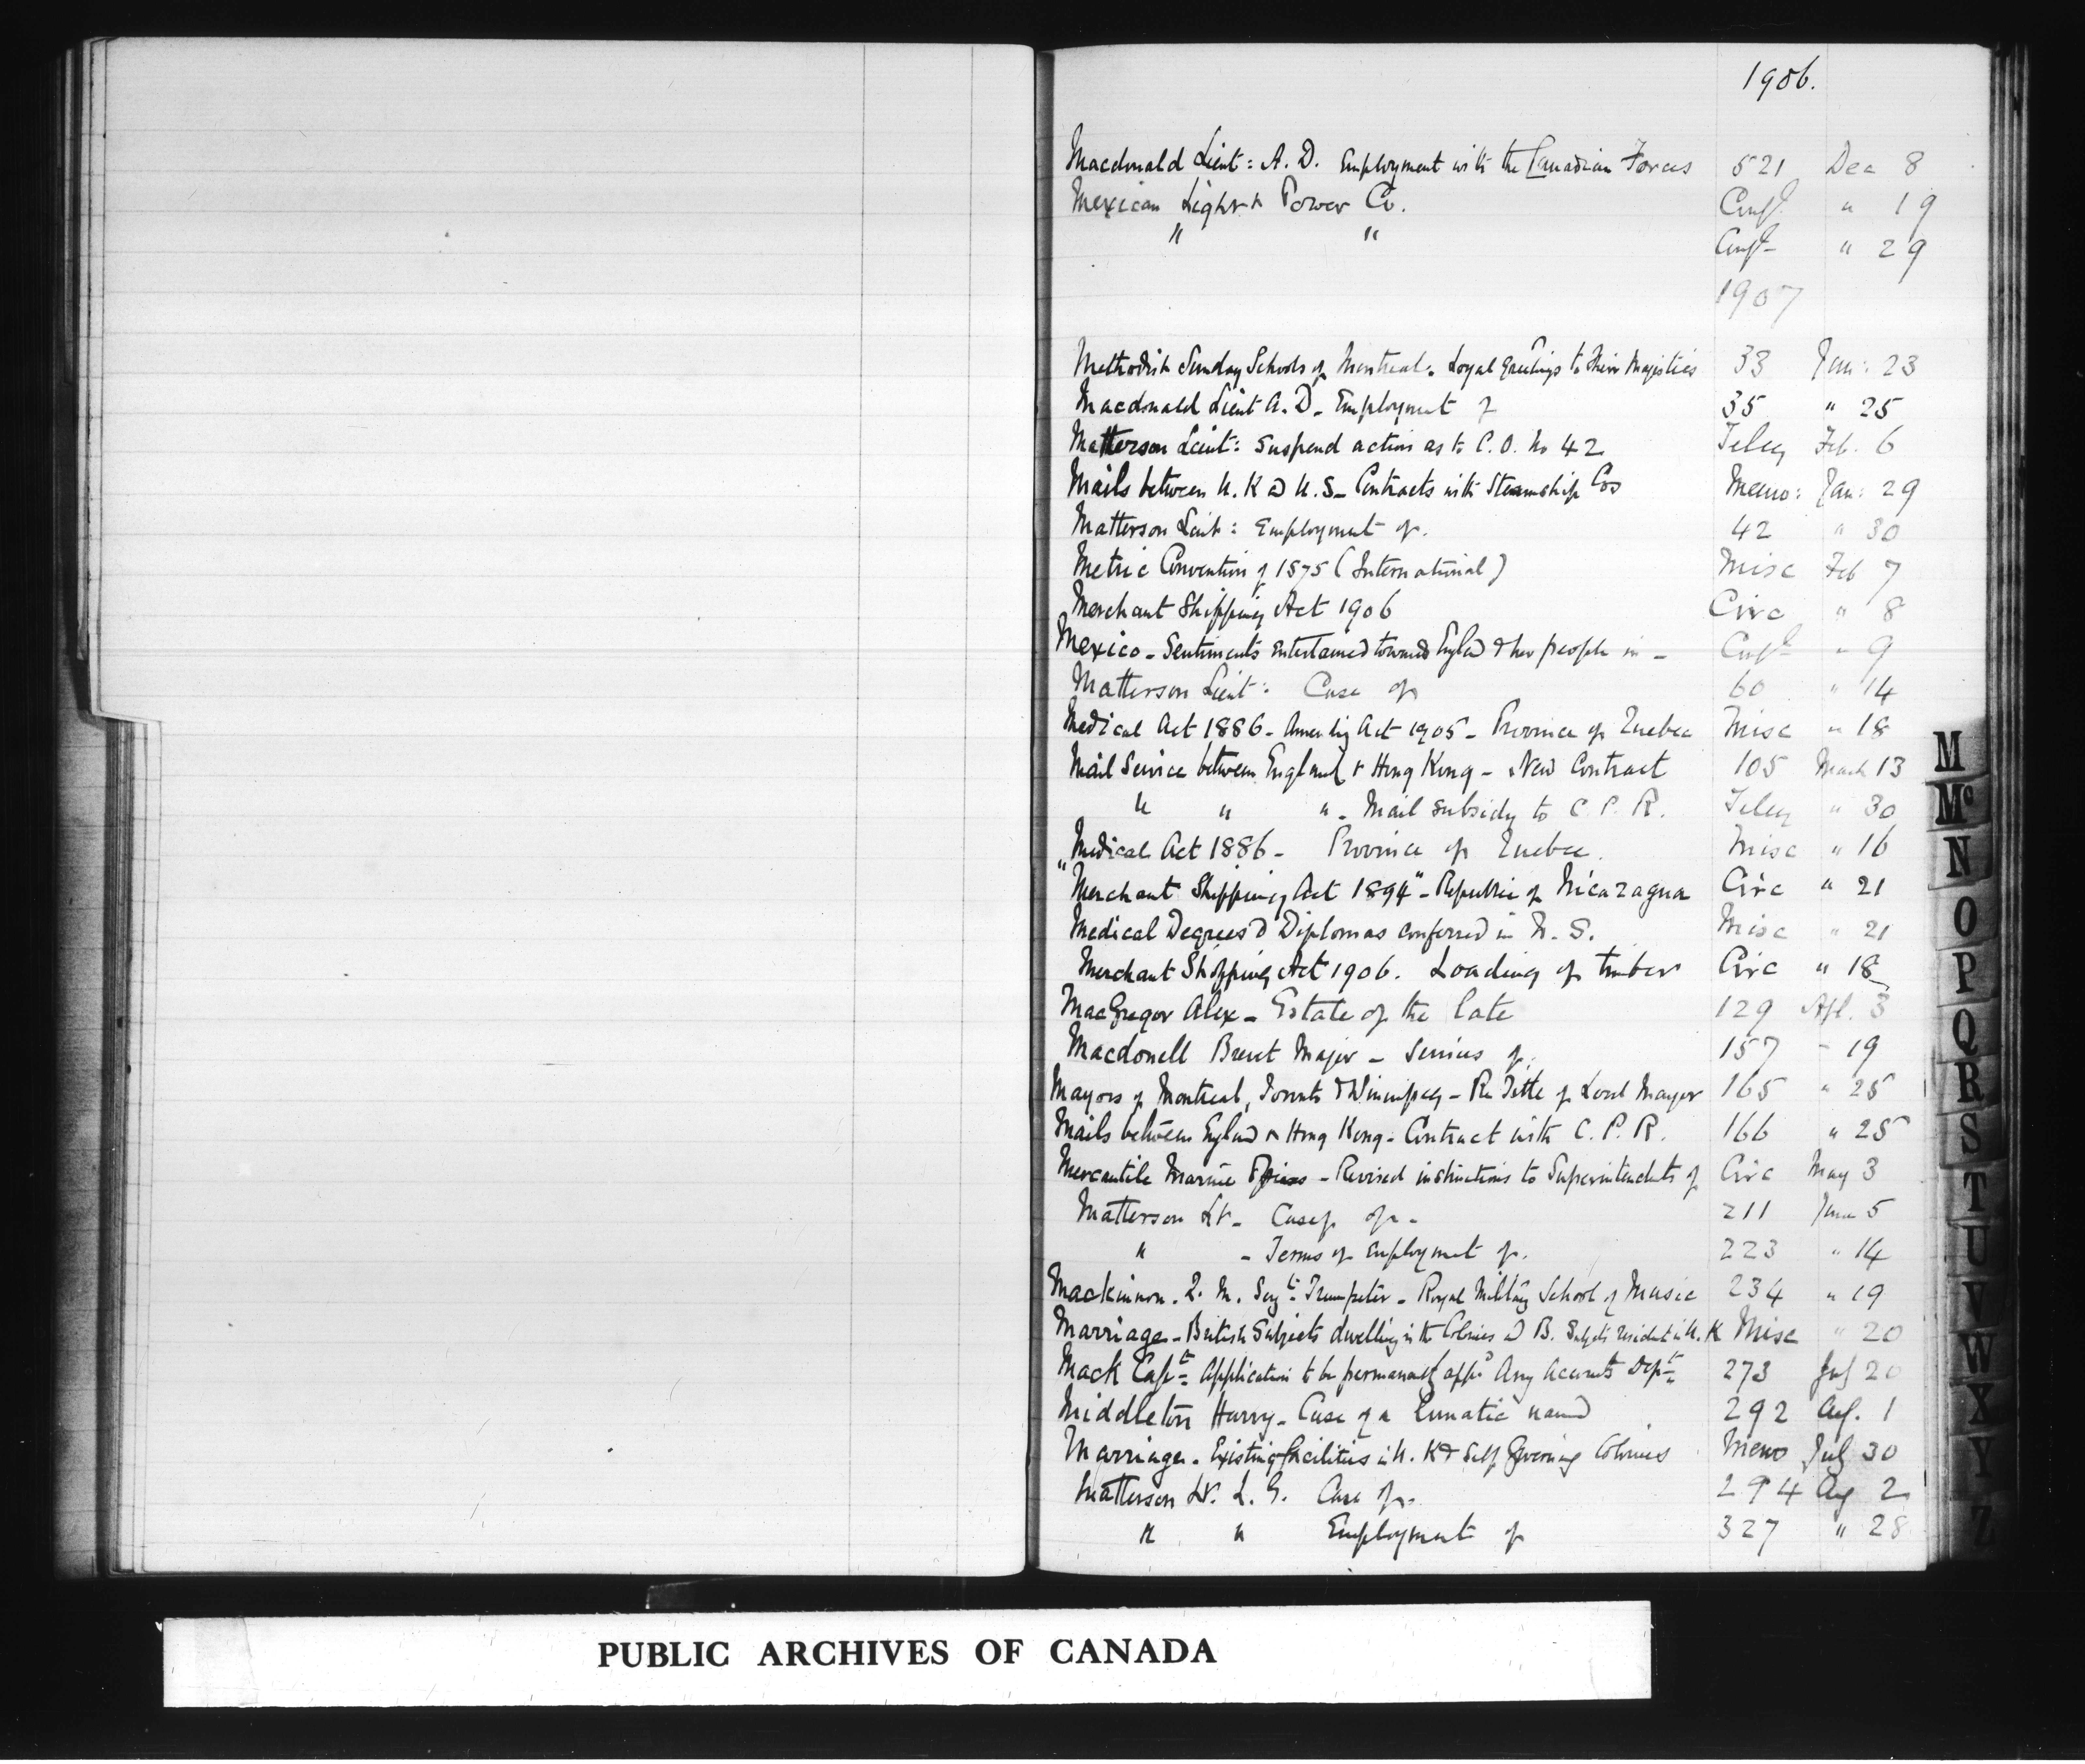 1906.
Macdonald Lieut: A. D. Employment with the Canadian Forces 521 Dec 8
Mexican Light & Power Co. Confl " 19
" " Confl " 29
1907
Methodist Sunday Schools of Montreal. Loyal Greetings to Their Majesties 33 Jan: 23
Macdonald Lieut A. D. Employment of 35 " 25
Matterson Lieut: Suspend action as to C. O. No 42 Teleg Feb. 6
Mails between U. K & U. S. Contracts with Steamship Cos Memo: Jan: 29
Matterson Lieut: Employment of. 42 " 30
Metric Convention of 1875 (International) Misc Feb 7
Merchant Shipping Act 1906 Circ " 8
Mexico - Sentiments entertained towards Englad & her people in - Confl " 9
Matterson Lieut: Case of 60 " 14
Medical Act 1886 - Amending Act 1905 - Province of Quebec Misc " 18
Mail Service between England & Hong Kong - New Contract 105 March 13
" " " - Mail subsidy to C. P. R. Teleg " 30
Medical Act 1886 - Province of Quebec. Misc " 16
"Merchant Shipping Act 1894" - Republic of Nicaragua Circ " 21
Medical Degrees & Diplomas conferred in N. S. Misc " 21
Merchant Shipping Act 1906. Loading of timber Circ " 18
MacGregor Alex - Estate of the late 129 Apl. 3
Macdonell Brevet Major - Services of. 157 " 19
Mayors of Montreal, Toronto & Winnipeg - Re Title of Lord Mayor 165 " 25
Mails between Englad & Hong Kong - Contract with C. P. R. 166 " 25
Mercantile Marine Offices - Revised instructions to Superintendents of Circ May 3
Matterson Lt - Case of - 211 June 5
" - Terms of employment of. 223 " 14
Mackinnon. Q. M. Sergt: Trumpeter - Royal Military School of Music 234 " 19
Marriage - British Subjects dwelling in the Colonies & B. Subjects resident in U. K Misc " 20
Mack Capt: Application to be permanently appd Army Accounts Dept: 273 July 20
Middleton Harry - Case of a Lunatic named 292 Ag. 1
Marriage - Existing facilities in U. K & Self Governing Colonies Memo July 30
Matterson Lt. L. G. Case of. 294 Ag 2
" " Employment of 327 " 28
M
Mc
N
O
P
Q
R
S
T
U
V
W
X
Y
Z
PUBLIC ARCHIVES OF CANADA